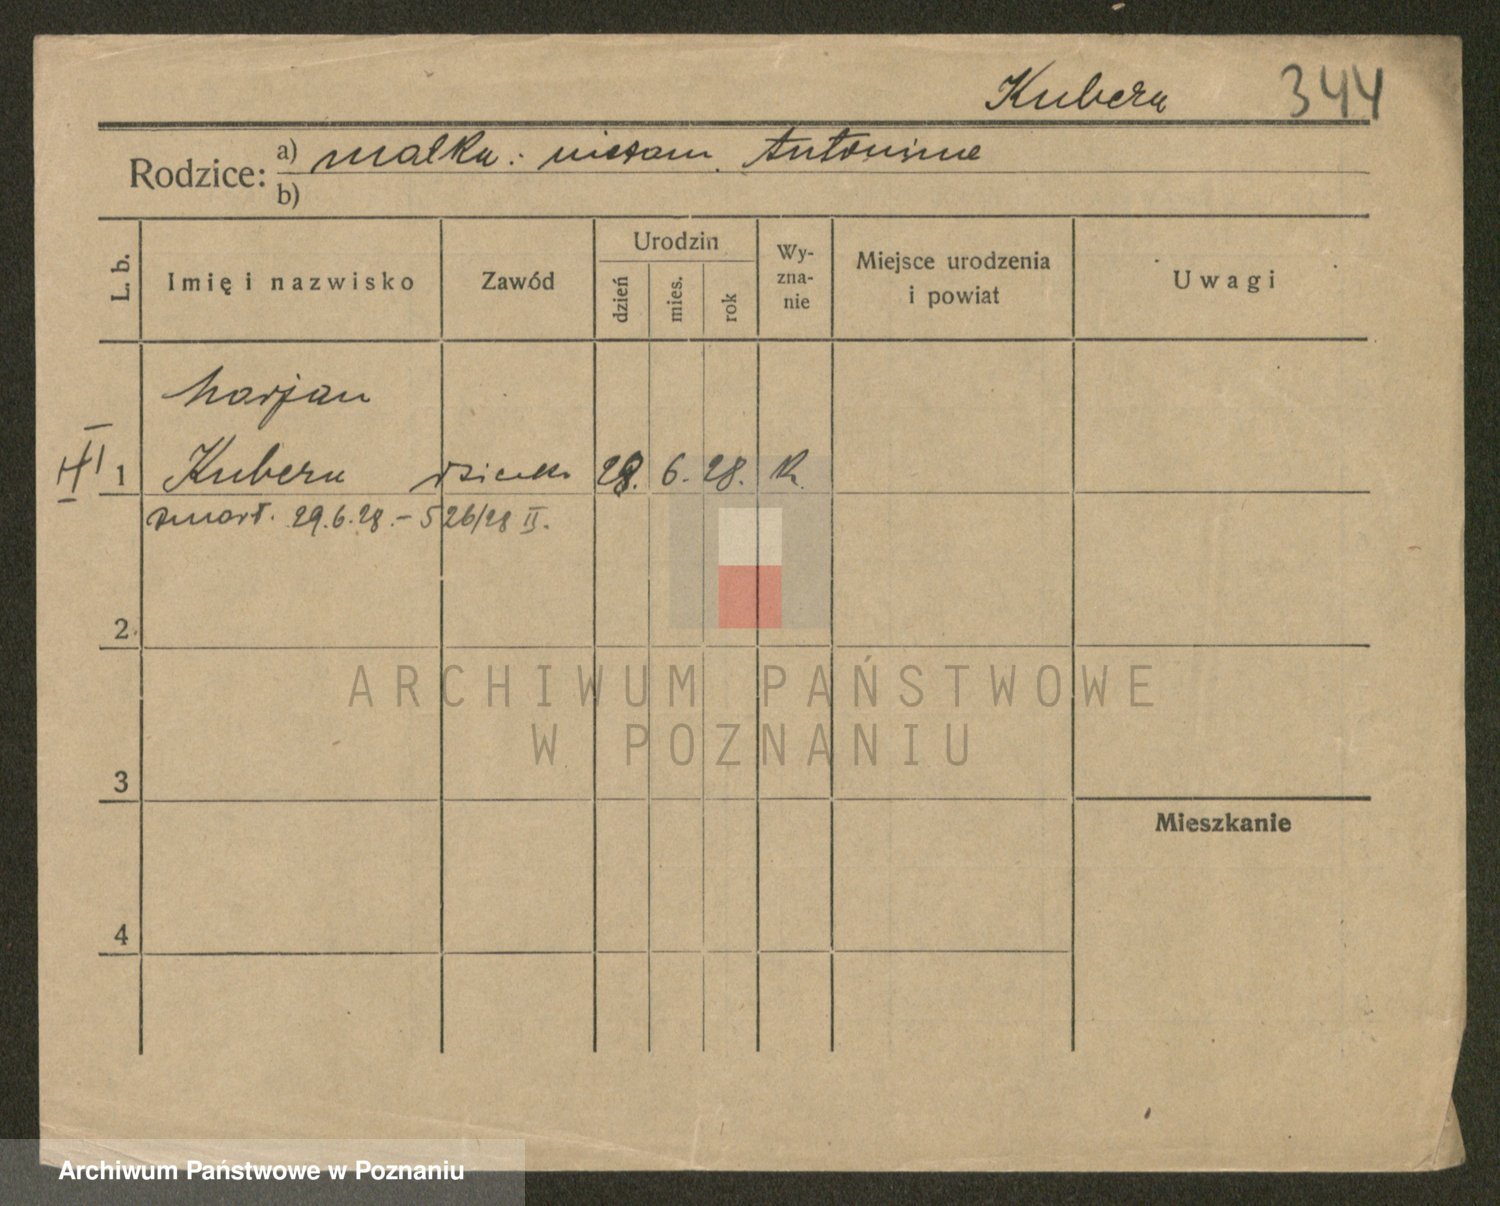 Kubera 344
Rodzice: a) matka: niezam. Antonina
b)
L. b. Imię i nazwisko Zawód Urodzin dzień mies. rok Wy-zna-nie Miejsce urodzenia i powiat Uwagi
Marjan
1 Kubera dziecko 28. 6. 28. k.
zmarł. 29.6.28. – 526/28 II.
2
3
Mieszkanie
4
ARCHIWUM PAŃSTWOWE
W POZNANIU
Archiwum Państwowe w Poznaniu